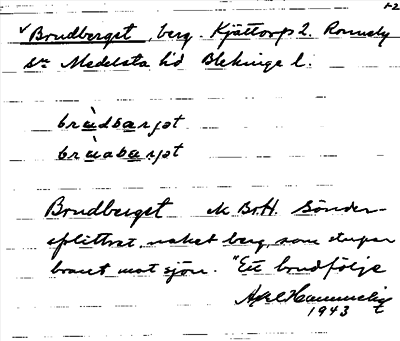 1-2
√ Brudberget, berg. Kjättorp 2. Ronneby
sn Medelsta hd Blekinge l.
brùdbarjət
brùabarjət
Brudberget Br.H. Sönder-
splittrat, naket berg, som stupar
brant mot sjön. "Ett brudfölje
Axel
1943